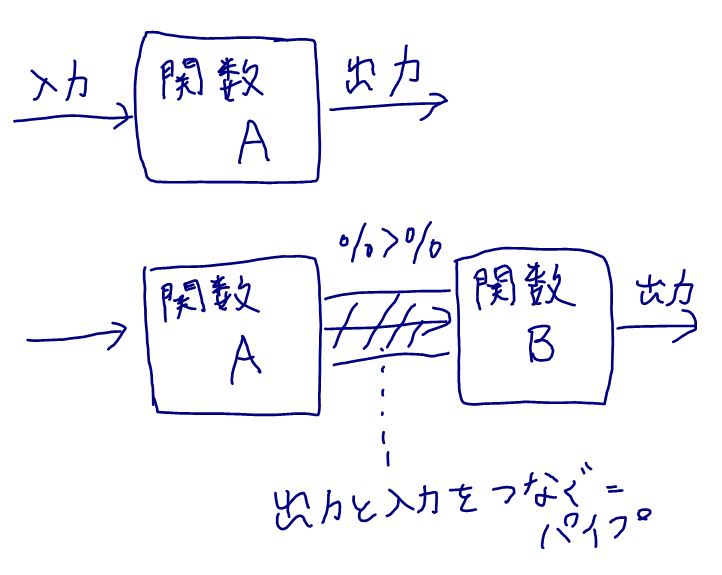 入力
関数
A
出力
%>%
関数
A
関数
B
出力
出力と入力をつなぐ=
パイプ